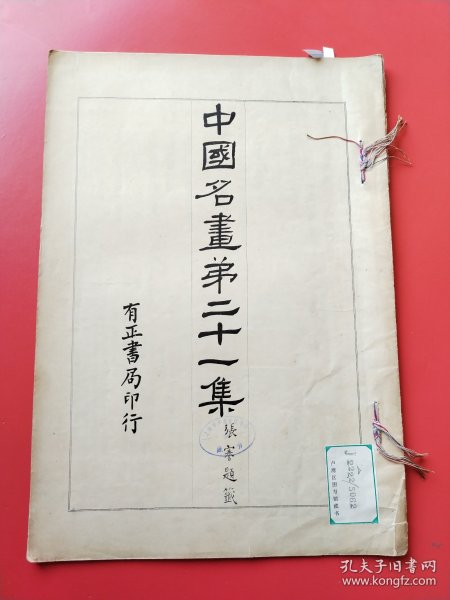 中國名畫第二十一集
張謇題籤
有正書局印行
卢湾区图书馆藏书
孔夫子旧书网
www.kongfz.com